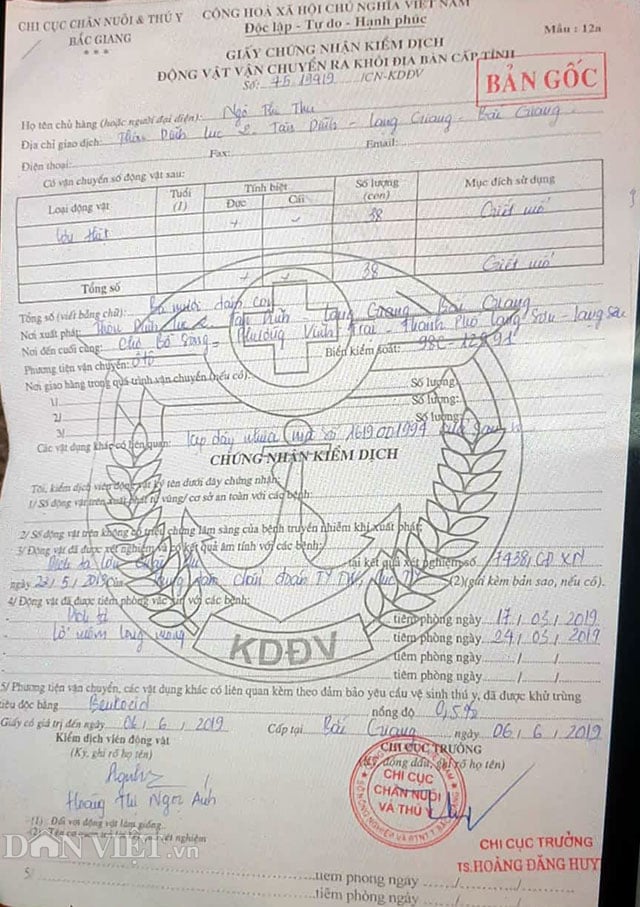 CHI CỤC CHĂN NUÔI & THÚ Y
BẮC GIANG
* * *
CỘNG HOÀ XÃ HỘI CHỦ NGHĨA VIỆT NAM
Độc lập - Tự do - Hạnh phúc
Mẫu: 12a
GIẤY CHỨNG NHẬN KIỂM DỊCH
ĐỘNG VẬT VẬN CHUYỂN RA KHỎI ĐỊA BÀN CẤP TỈNH
Số: 75.19419 /CN-KDĐV
BẢN GỐC
Họ tên chủ hàng (hoặc người đại diện): Ngô Thị Thu
Địa chỉ giao dịch: Thôn Dĩnh Lục 2 Tân Dĩnh - Lạng Giang - Bắc Giang
Điện thoại: Fax: Email:
Có vận chuyển số động vật sau:
Loại động vật Tuổi (1) Tính biệt Số lượng (con) Mục đích sử dụng
Đực Cái
Lợn thịt + - 38 Giết mổ
Tổng số + - 38 Giết mổ
Tổng số (viết bằng chữ): Ba mươi tám con
Nơi xuất phát: Thôn Dĩnh Lục 2 Tân Dĩnh - Lạng Giang - Bắc Giang
Nơi đến cuối cùng: Chợ Bờ Sông - Phường Vĩnh Trại - Thành Phố Lạng Sơn - Lạng Sơn
Phương tiện vận chuyển: Ôtô Biển kiểm soát: 98C-12591
Nơi giao hàng trong quá trình vận chuyển (nếu có):
1/ Số lượng:
2/ Số lượng:
3/ Số lượng:
Các vật dụng khác có liên quan: Kẹp dây nhựa (mã số 1619001994
CHỨNG NHẬN KIỂM DỊCH
Tôi, kiểm dịch viên động vật ký tên dưới đây chứng nhận:
1/ Số động vật trên xuất phát từ vùng/ cơ sở an toàn với các bệnh:
2/ Số động vật trên không có triệu chứng lâm sàng của bệnh truyền nhiễm khi xuất phát.
3/ Động vật đã được xét nghiệm và có kết quả âm tính với các bệnh:
Dịch tả lợn Châu Phi tại kết quả xét nghiệm số 7438/CĐXN
ngày 23/5/2019 của Trung tâm chẩn đoán TYTW, Cục TY (2) (gửi kèm bản sao, nếu có).
4/ Động vật đã được tiêm phòng vắc xin với các bệnh:
Dịch tả tiêm phòng ngày 17/03/2019
Lở mồm long móng tiêm phòng ngày 24/03/2019
tiêm phòng ngày / /
tiêm phòng ngày / /
KDĐV
5/ Phương tiện vận chuyển, các vật dụng khác có liên quan kèm theo đảm bảo yêu cầu vệ sinh thú y, đã được khử trùng
tiêu độc bằng Benkocid nồng độ 0,5%
Giấy có giá trị đến ngày 06/6/2019 Cấp tại Bắc Giang, ngày 06/6/2019
Kiểm dịch viên động vật
(Ký, ghi rõ họ tên)
CHI CỤC TRƯỞNG
(Ký, đóng dấu, ghi rõ họ tên)
CHI CỤC
CHĂN NUÔI
VÀ THÚ Y
Hoàng Thị Ngọc Anh
(1) Đối với động vật làm giống.
DÂN VIỆT.vn
CHI CỤC TRƯỞNG
TS.HOÀNG ĐĂNG HUY
5/ tiêm phòng ngày / /
tiêm phòng ngày / /